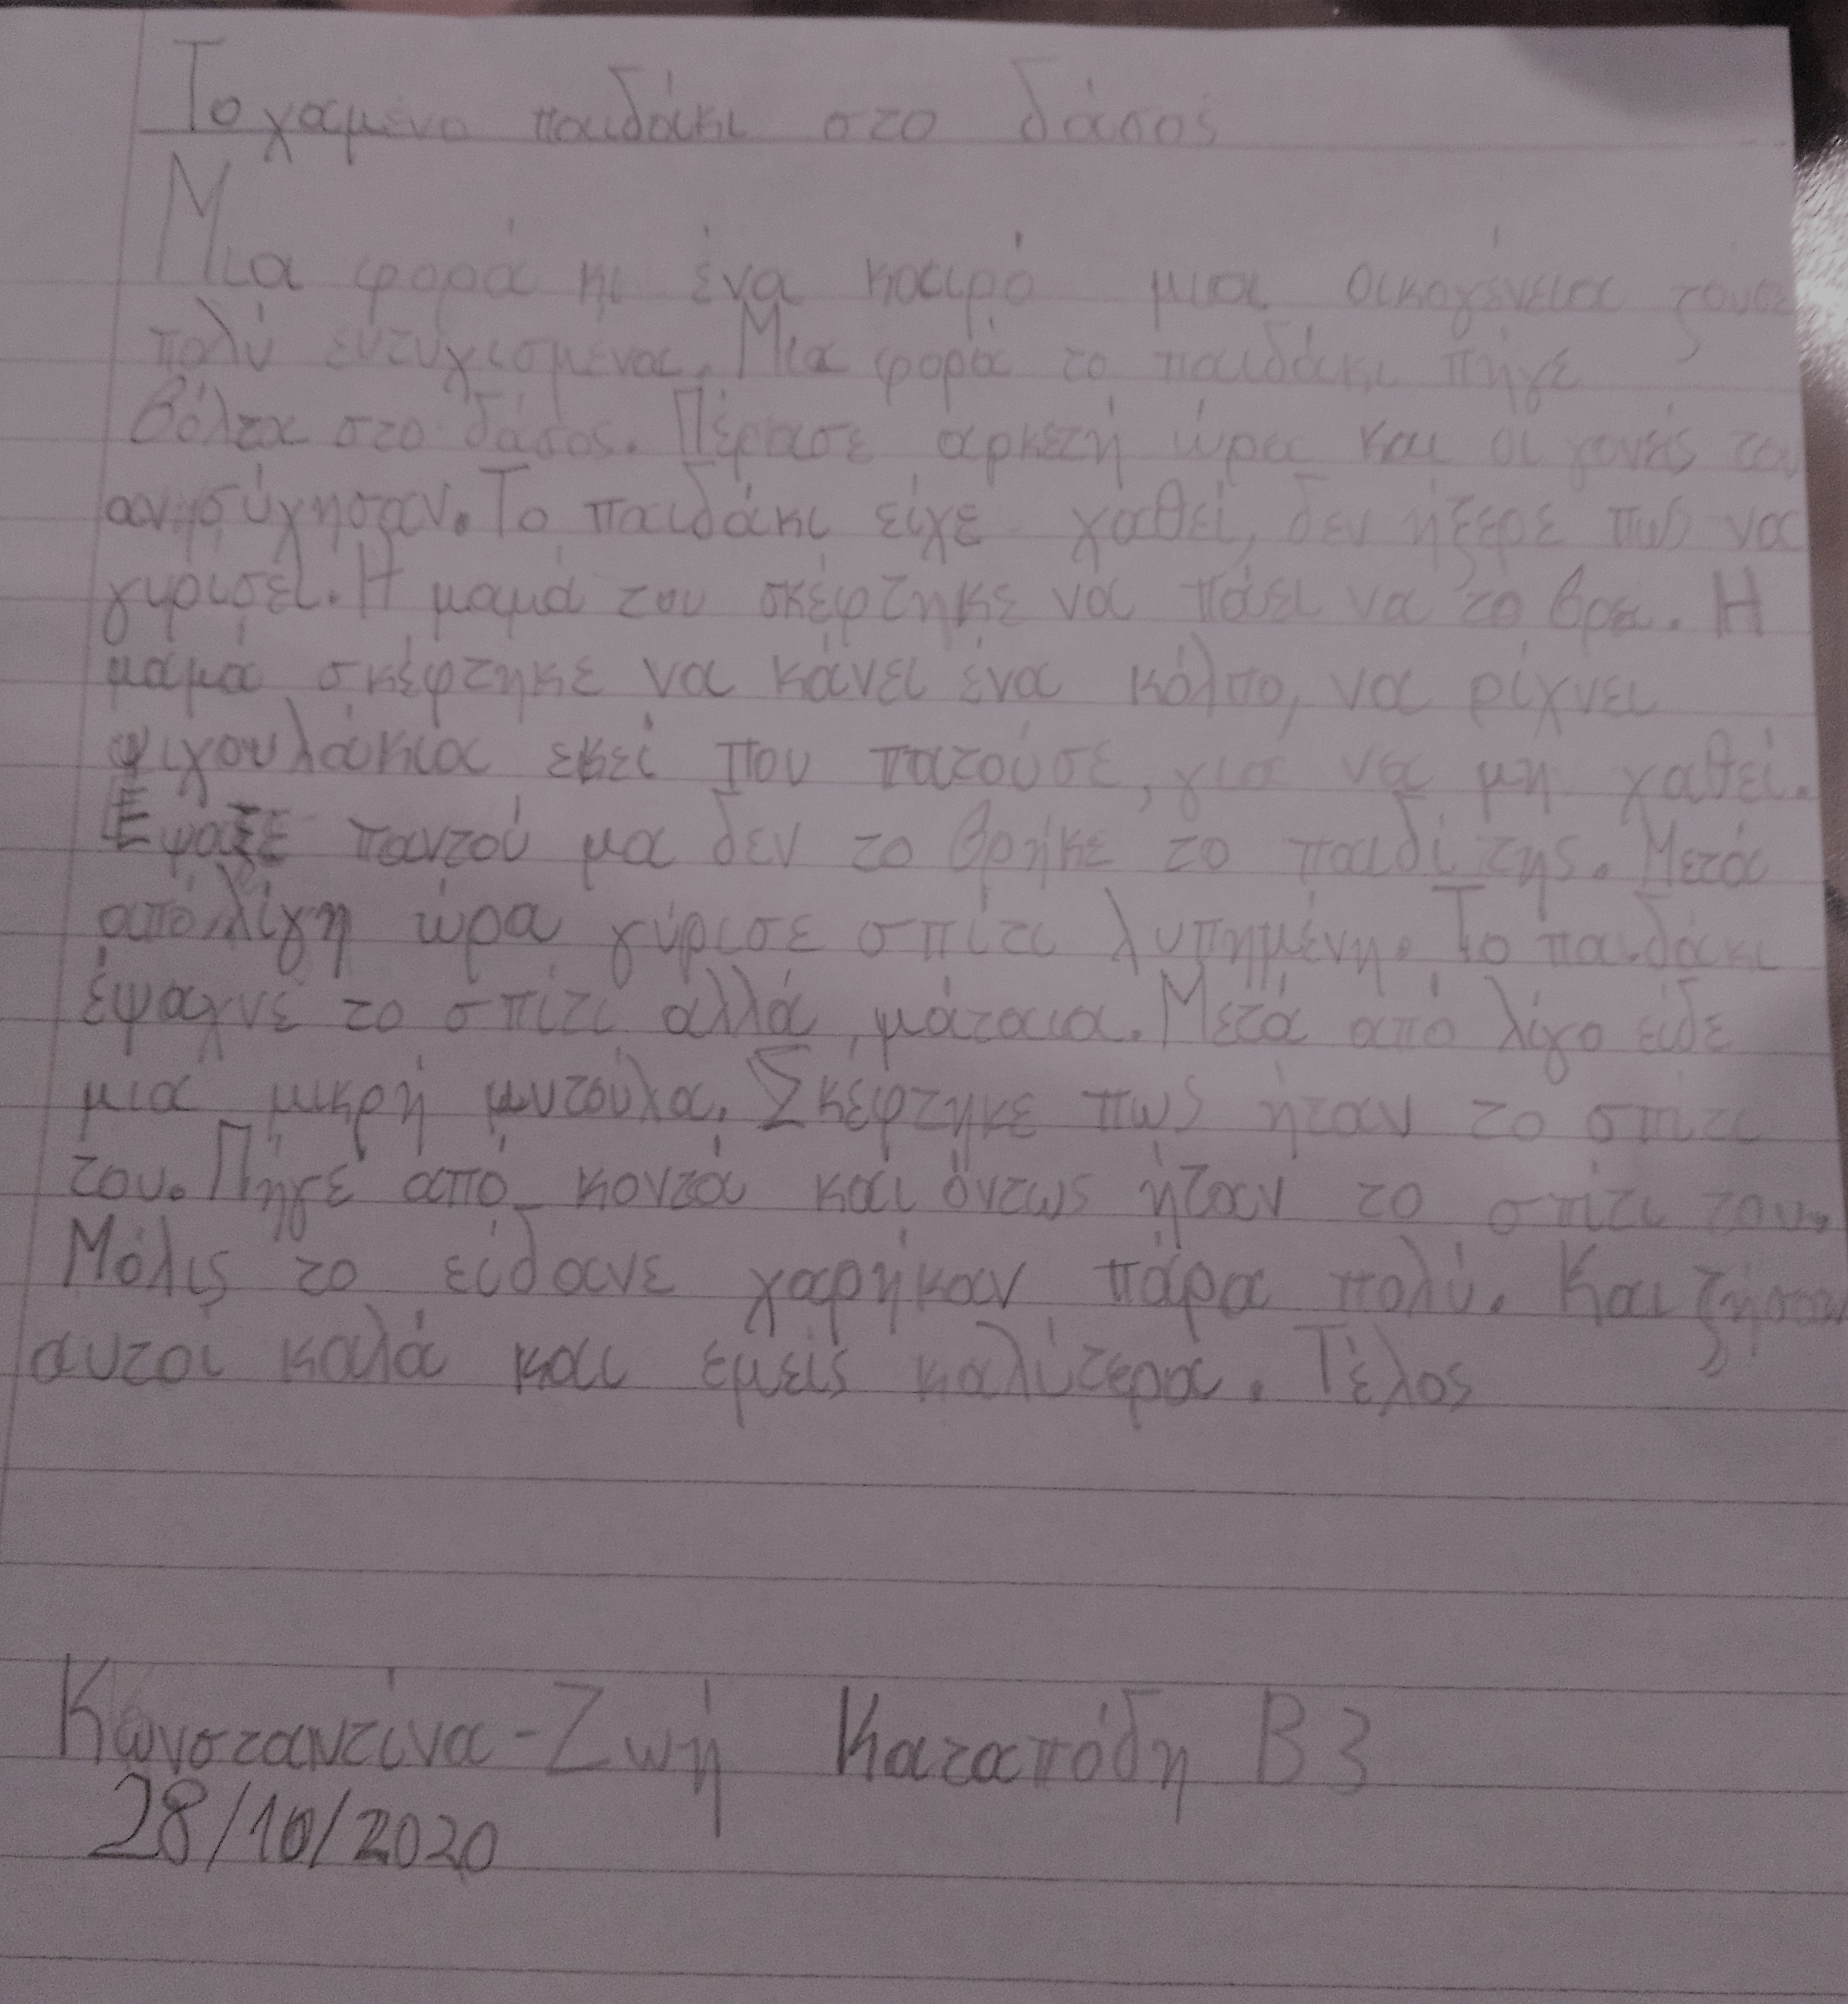 Το χαμένο παιδάκι στο δάσος
Μια φορά κι ένα καιρό μια οικογένεια ζούσε
πολύ ευτυχισμένα. Μια φορά το παιδάκι πήγε
βόλτα στο δάσος. Πέρασε αρκετή ώρα και οι γονείς του
ανησύχησαν. Το παιδάκι είχε χαθεί, δεν ήξερε πως να
γυρίσει. Η μαμά του σκέφτηκε να πάει να το βρει. Η
μαμά σκέφτηκε να κάνει ένα κόλπο, να ρίχνει
ψιχουλάκια εκεί που πατούσε, για να μη χαθεί.
Εψαξε παντού μα δεν το βρήκε το παιδί της. Μετά
από λίγη ώρα γύρισε σπίτι λυπημένη. Το παιδάκι
έψαχνε το σπίτι αλλά, μάταια. Μετά από λίγο είδε
μια μικρή μυτούλα. Σκέφτηκε πως ήταν το σπίτι
του. Πήγε από κοντά και όντως ήταν το σπίτι του.
Μόλις το είδανε χαρήκαν πάρα πολύ. Και ζήσαν
αυτοί καλά και εμείς καλύτερα. Τέλος
Κωνσταντίνα-Ζωή Καταπόδη Β3
28/10/2020